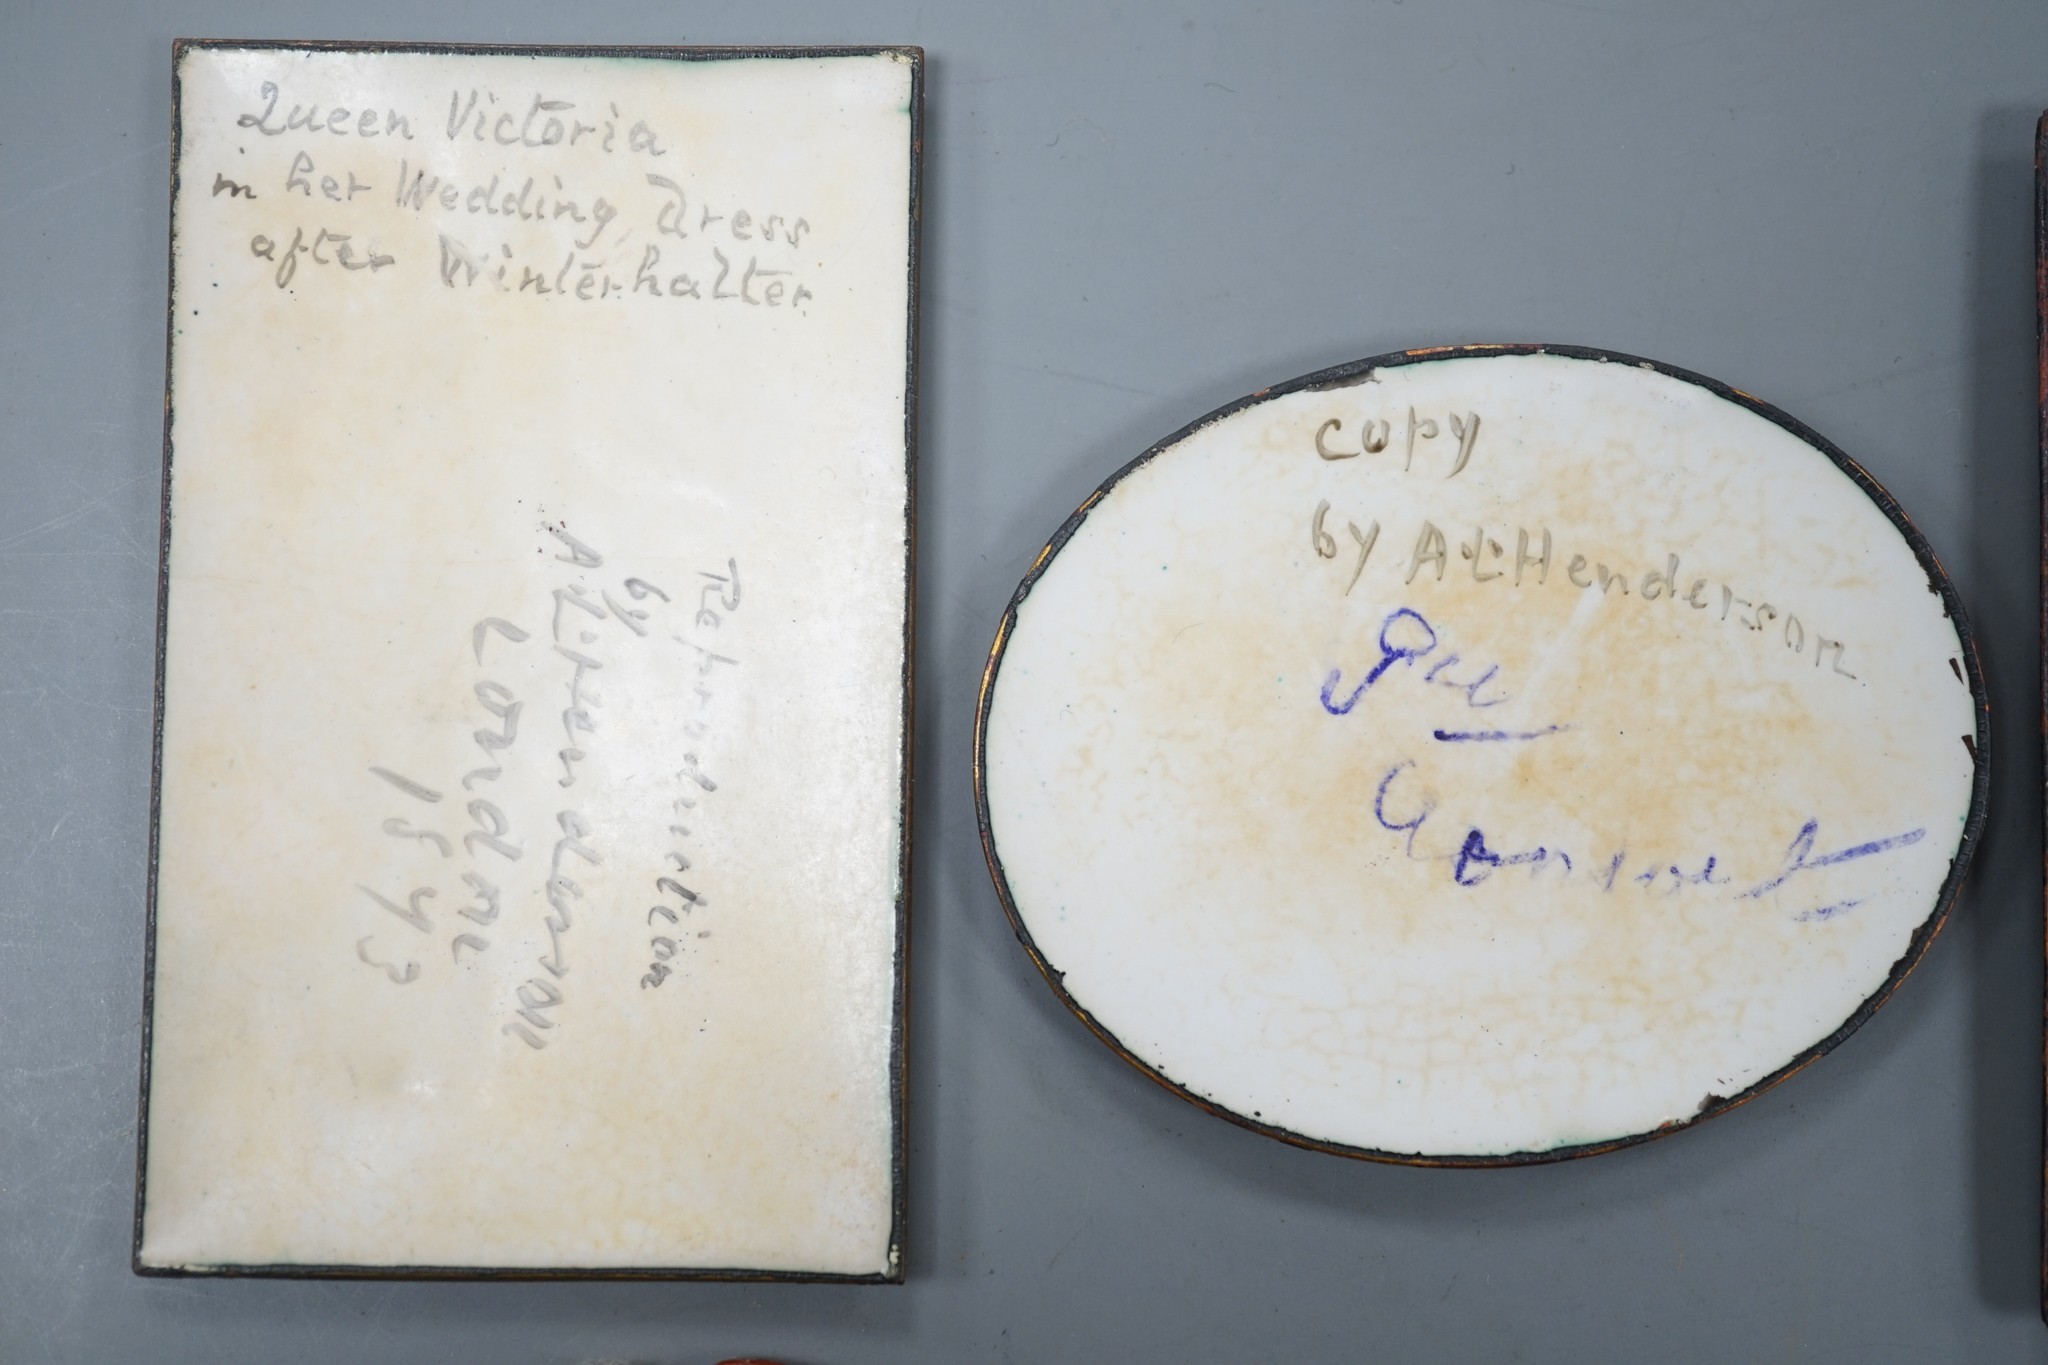 Queen Victoria
in her Wedding Dress
after Winterhalter
Reproduction
by
A.L. Henderson
London
copy
by A.L. Henderson